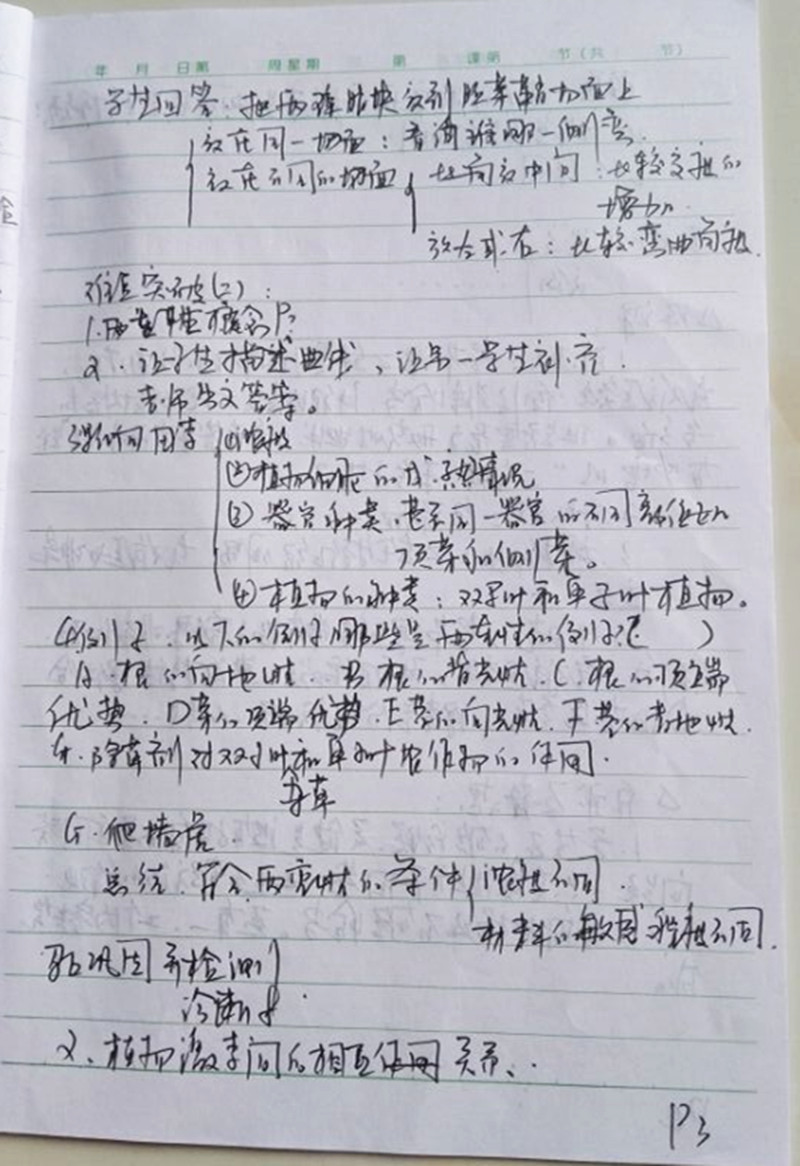 年 月 日第 周星期 第 课第 节(共 节)
学生回答:把两琼脂块分别胚芽鞘切面上
放在同一切面:看谁哪一侧弯
放在不同的切面
切面放中间:比较高度的
增加
放左或右:比较弯曲角度.
难点突破(二):
1.两重性概念P
2.让学生描述曲线,让另一学生补充
老师公文答案。
影响因素
①浓度
②植物细胞的成熟情况
③器官种类,甚至同一器官的不同部位如
顶芽和侧芽。
④植物的种类:双子叶和单子叶植物。
(4)例子:以下的例子哪些是两重性的例子( )
A.根的向地性.B根的背光性.C.根的顶端
优势.D茎的顶端优势.E茎的向光性.F茎的背地性.
G.除草剂对双子叶和单子叶农作物的作用.
杂草
G.爬墙虎.
总结.符合两重性的条件
浓度不同.
材料的敏感程度不同.
巩固并检测
2、植物激素间的相互作用关系、
P3